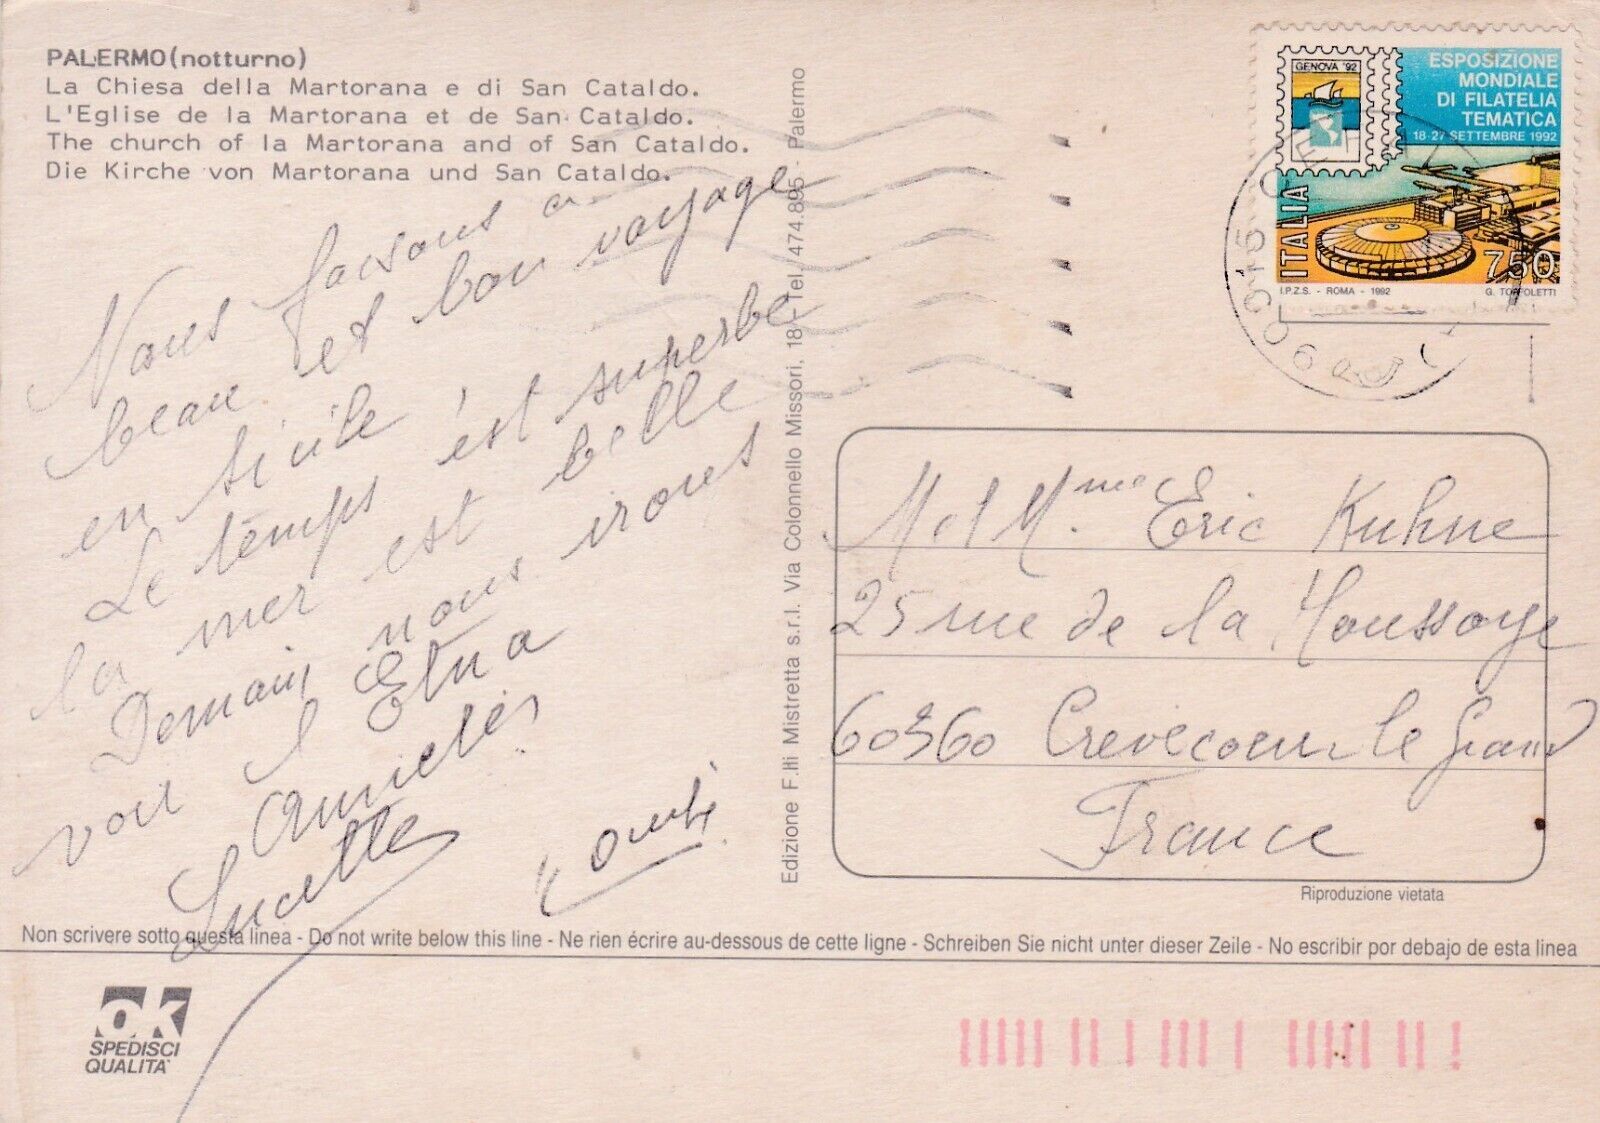 PALERMO(notturno)
La Chiesa della Martorana e di San Cataldo.
L'Eglise de la Martorana et de San Cataldo.
The church of la Martorana and of San Cataldo.
Die Kirche von Martorana und San Cataldo.
Nous faisons un
beau et bon voyage
en Sicile
Le temps est superbe
la mer est belle
Demain nous irons
voir l Etna
Amitiés
Lucette
Edizione F.lli Mistretta s.r.l. Via Colonnello Missori, 18 - Tel. 474.895 - Palermo
GENOVA '92
ESPOSIZIONE
MONDIALE
DI FILATELIA
TEMATICA
18-27 SETTEMBRE 1992
ITALIA
750
I.P.Z.S. - ROMA - 1992
G. TOFFOLETTI
M et Mme Eric Kuhne
25 rue de la Houssoye
60360 Crevecoeur le Grand
France
Riproduzione vietata
Non scrivere sotto questa linea - Do not write below this line - Ne rien écrire au-dessous de cette ligne - Schreiben Sie nicht unter dieser Zeile - No escribir por debajo de esta linea
OK
SPEDISCI
QUALITA'